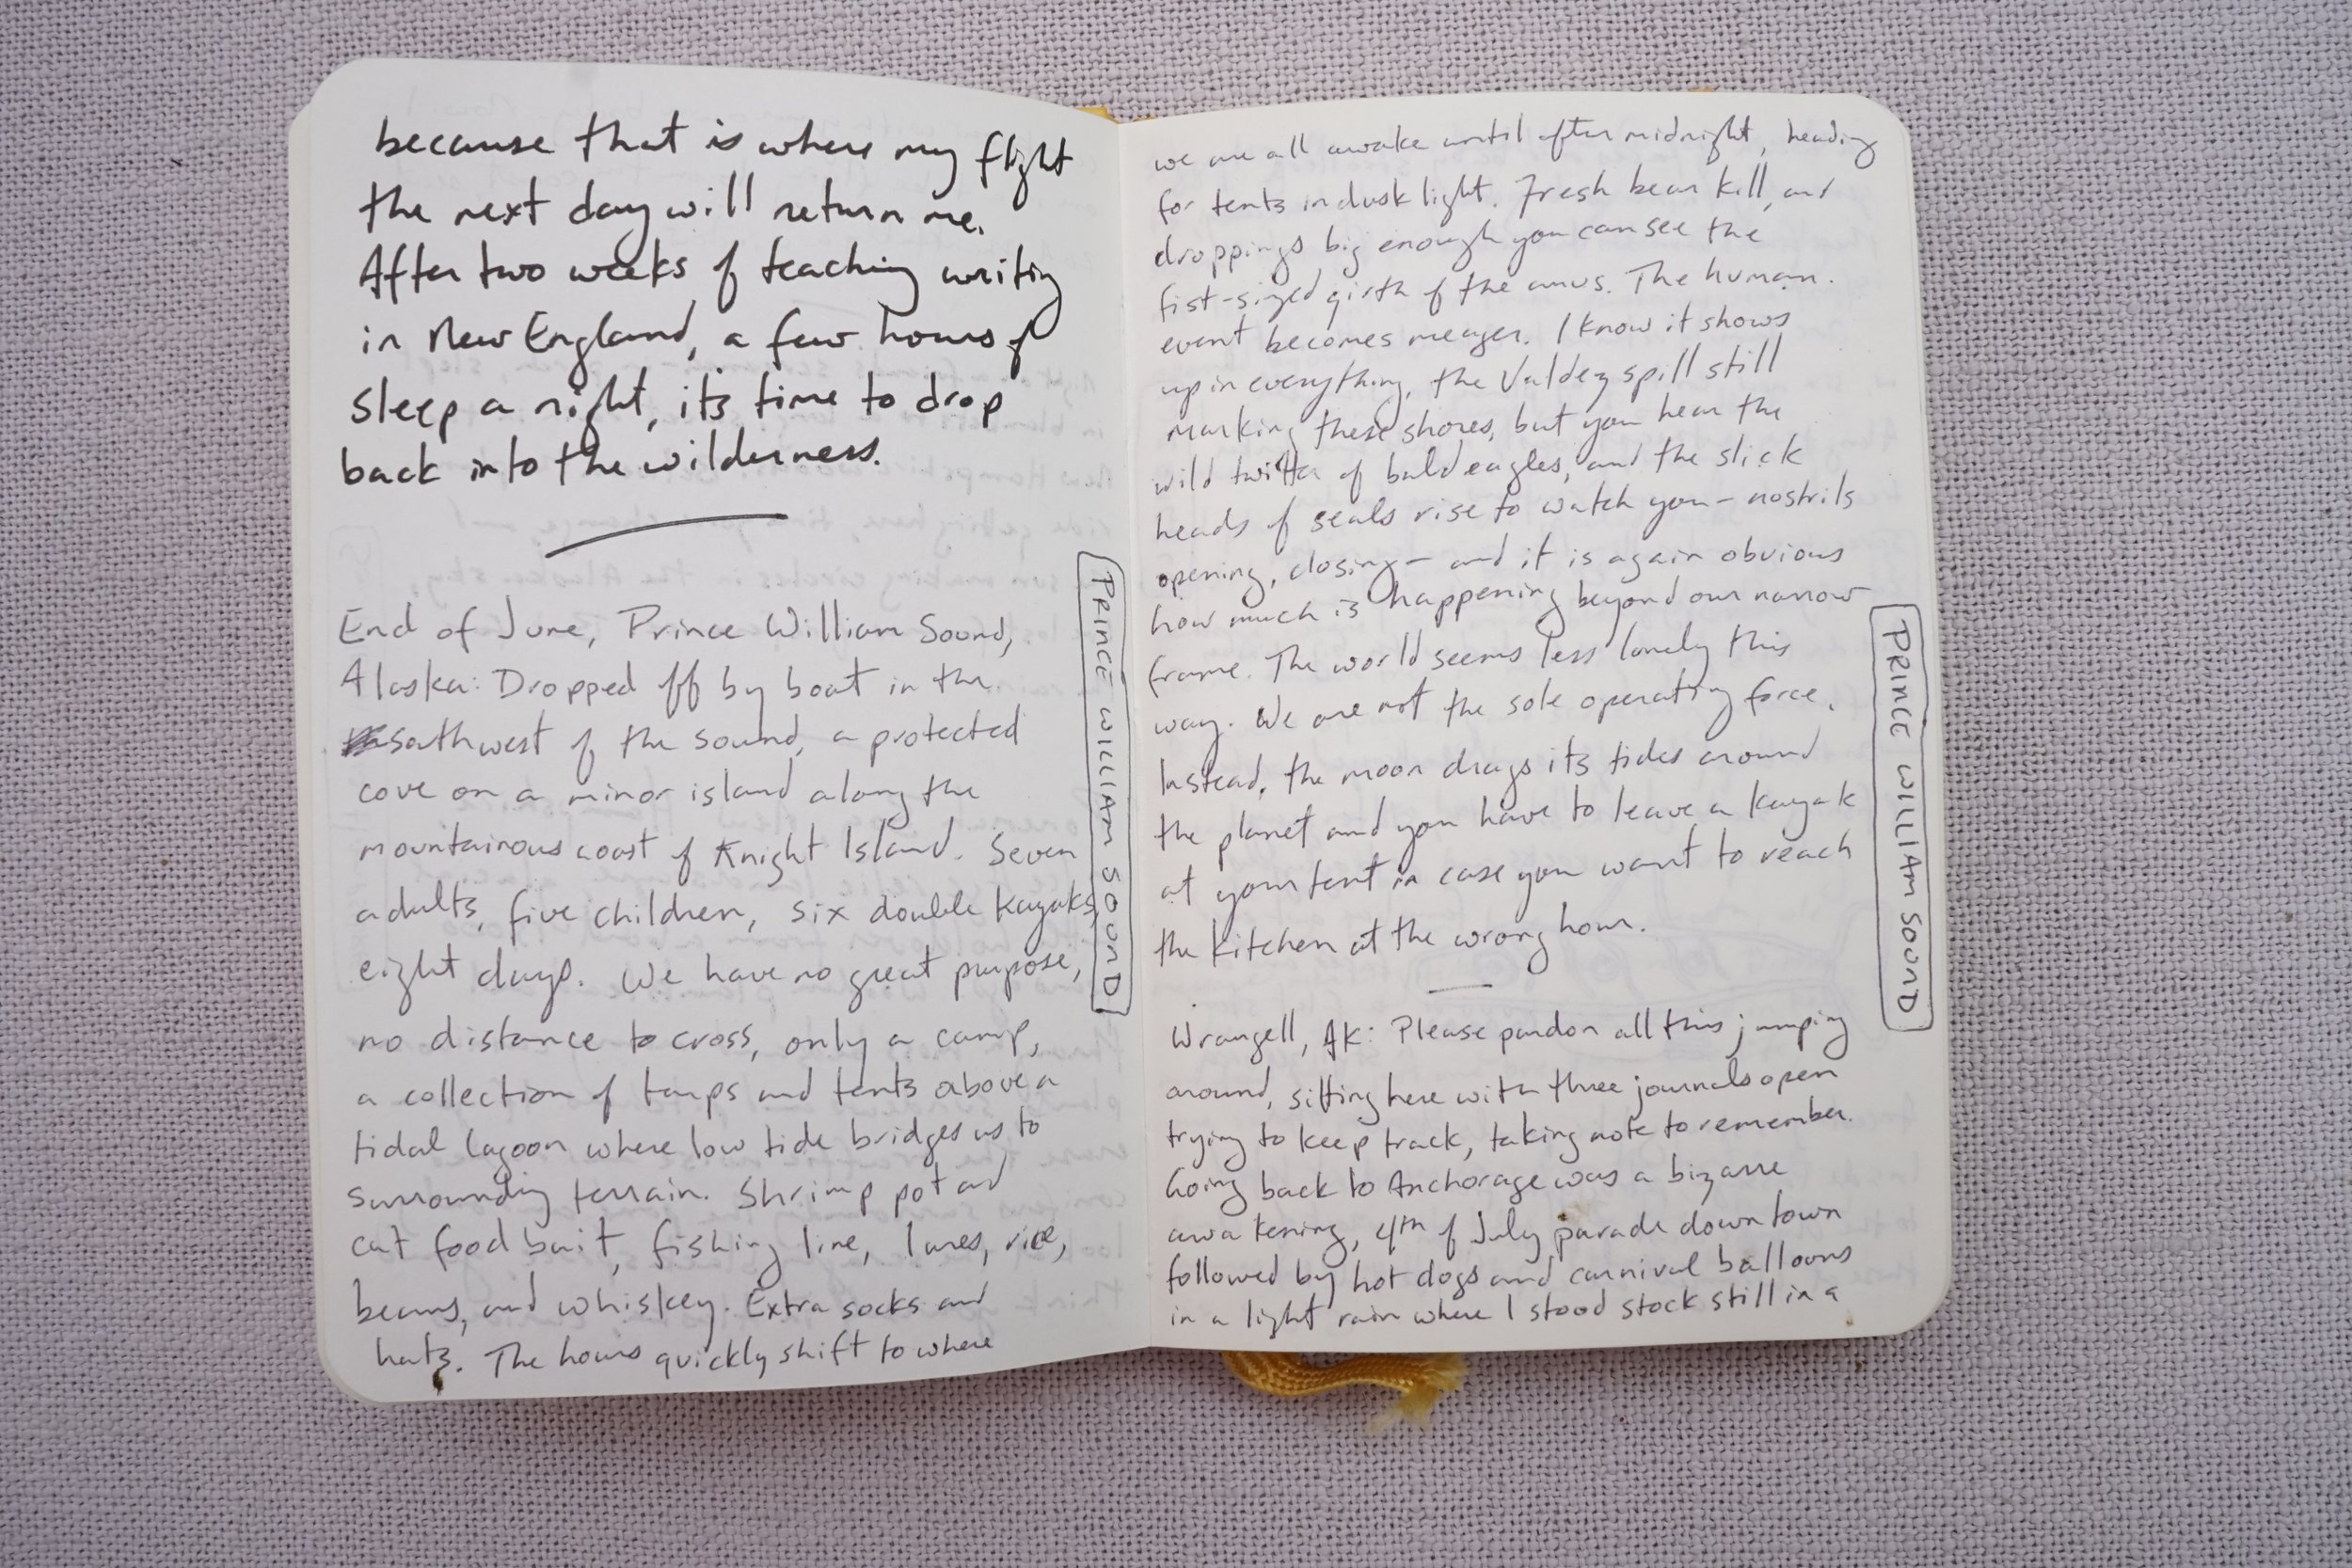 because that is where my flight
the next day will return me.
After two weeks of teaching writing
in New England, a few hours of
sleep a night, its time to drop
back into the wilderness.
End of June, Prince William Sound,
Alaska: Dropped off by boat in the
southwest of the sound, a protected
cove on a minor island along the
mountainous coast of Knight Island. Seven
adults, five children, six double kayaks,
eight days. We have no great purpose,
no distance to cross, only a camp,
a collection of tarps and tents above a
tidal lagoon where low tide bridges us to
surrounding terrain. Shrimp pot and
cat food bait, fishing line, lures, rice,
beans, and whiskey. Extra socks and
hats. The hours quickly shift to where
PRINCE WILLIAM SOUND
we are all awake until after midnight, heading
for tents in dusk light. Fresh bear kill, and
droppings big enough you can see the
fist-sized girth of the anus. The human
event becomes meager. I know it shows
up in everything, the Valdez spill still
marking these shores, but you hear the
wild twitter of bald eagles, and the slick
heads of seals rise to watch you – nostrils
opening, closing – and it is again obvious
how much is happening beyond our narrow
frame. The world seems less lonely this
way. We are not the sole operating force.
Instead, the moon drags its tides around
the planet and you have to leave a kayak
at your tent in case you want to reach
the kitchen at the wrong hour.
Wrangell, AK: Please pardon all this jumping
around, sitting here with three journals open
trying to keep track, taking note to remember.
Going back to Anchorage was a bizarre
awakening, 4th of July parade downtown
followed by hot dogs and carnival balloons
in a light rain where I stood stock still in a
PRINCE WILLIAM SOUND